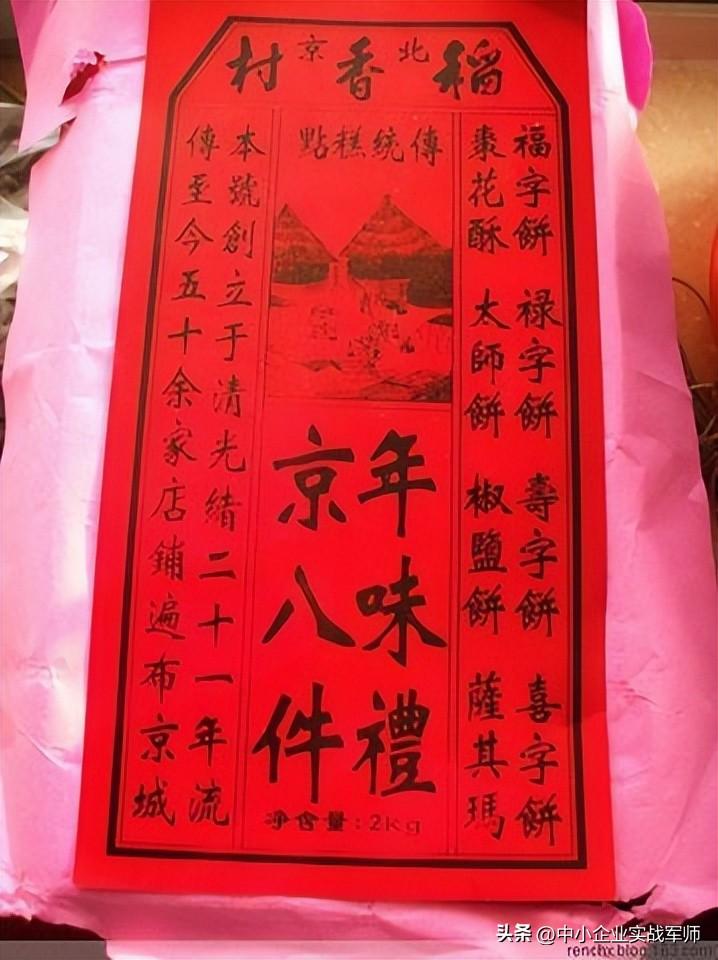 稻香村
北京
傳統糕點
福字餅 禄字餅 壽字餅 喜字餅
棗花酥 太師餅 椒鹽餅 薩其瑪
年味禮
京八件
净含量:2kg
本號創立于清光緒二十一年流
傳至今五十余家店鋪遍布京城
头条 @中小企业实战军师
renchx.blog.163.com